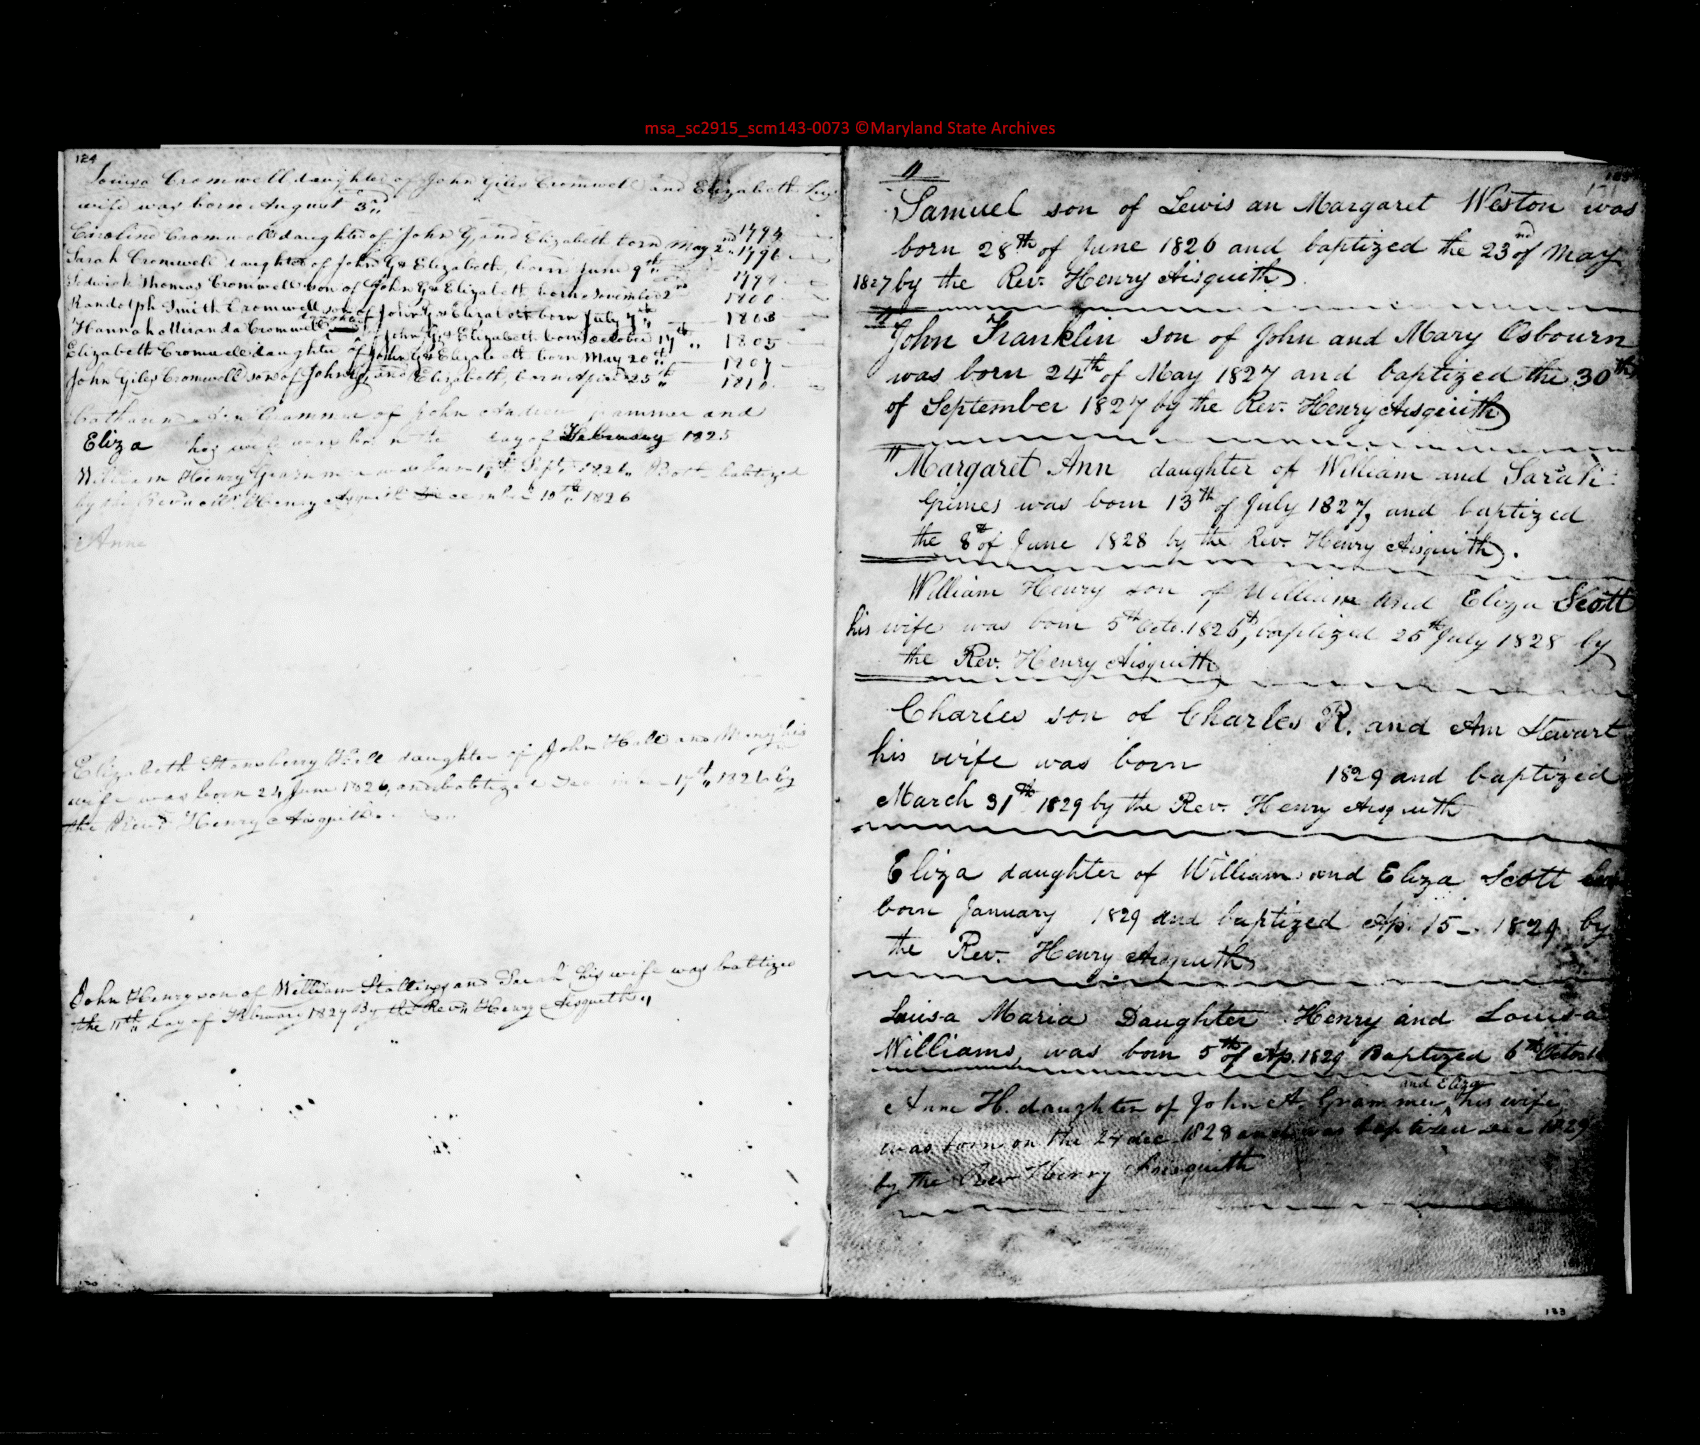 msa_sc2915_scm143-0073 ©Maryland State Archives
124
Louisa Cromwell daughter of John Giles Cromwell and Elizabeth
wife was born August 3rd
1794
Caroline Cromwell daughter of John G, and Elizabeth born May 2nd 1796
Sarah Cromwell daughter of John G & Elizabeth, born June 9th
1798
Thomas Cromwell son of John G & Elizabeth born November 2nd 1800
Randolph Smith Cromwell son of John G & Elizabeth born July 7th 1803
Hannah Miranda Cromwell daughter of John G & Elizabeth born October 19th 1805
Elizabeth Cromwell daughter of John G & Elizabeth born May 20th 1807
John Giles Cromwell son of John G, and Elizabeth, born April 25th 1810
of John Andrew Grammer and
Eliza his wife was born the day of February 1825
William Henry Grammer was born 19th Sept. 1826. Both babtized
by the Revd. Henry Aisquith December 1826
Anne
Elizabeth Stansberry Hall daughter of John Hall and Mary his
wife was born 24 June 1826, and babtized December 17th 1826 by
the Revd Henry Aisquith
John Henry son of William Stallings and Sarah his wife was babtized
the 11th day of February 1827 By the Rev. Henry Aisquith
"
Samuel son of Lewis an Margaret Weston was
born 28th of June 1826 and baptized the 23nd of May
1827 by the Rev. Henry Aisquith
"
John Franklin son of John and Mary Osbourn
was born 24th of May 1827 and baptized the 30th
of September 1827 by the Rev. Henry Aisquith
" Margaret Ann daughter of William and Sarah
Grimes was born 13th of July 1827, and baptized
the 8th of June 1828 by the Rev. Henry Aisquith.
William Henry son of William and Eliza Scott
his wife was born 5th Octo. 1826, baptized 25th July 1828 by
the Rev. Henry Aisquith
Charles son of Charles R. and Ann Stewart
his wife was born 1829 and baptized
March 31th 1829 by the Rev. Henry Aisquith
Eliza daughter of William and Eliza Scott
born January 1829 and baptized Ap. 15 - 1829 by
the Rev. Henry Aisquith
Louisa Maria Daughter Henry and Louisa
Williams, was born 5th of Ap. 1829 Baptized 6th
and Eliza
Anne H. daughter of John A. Grammer, his wife,
was born on the 24 dec 1828 and was baptized dec 1829
by the Rev Henry Aisquith
133